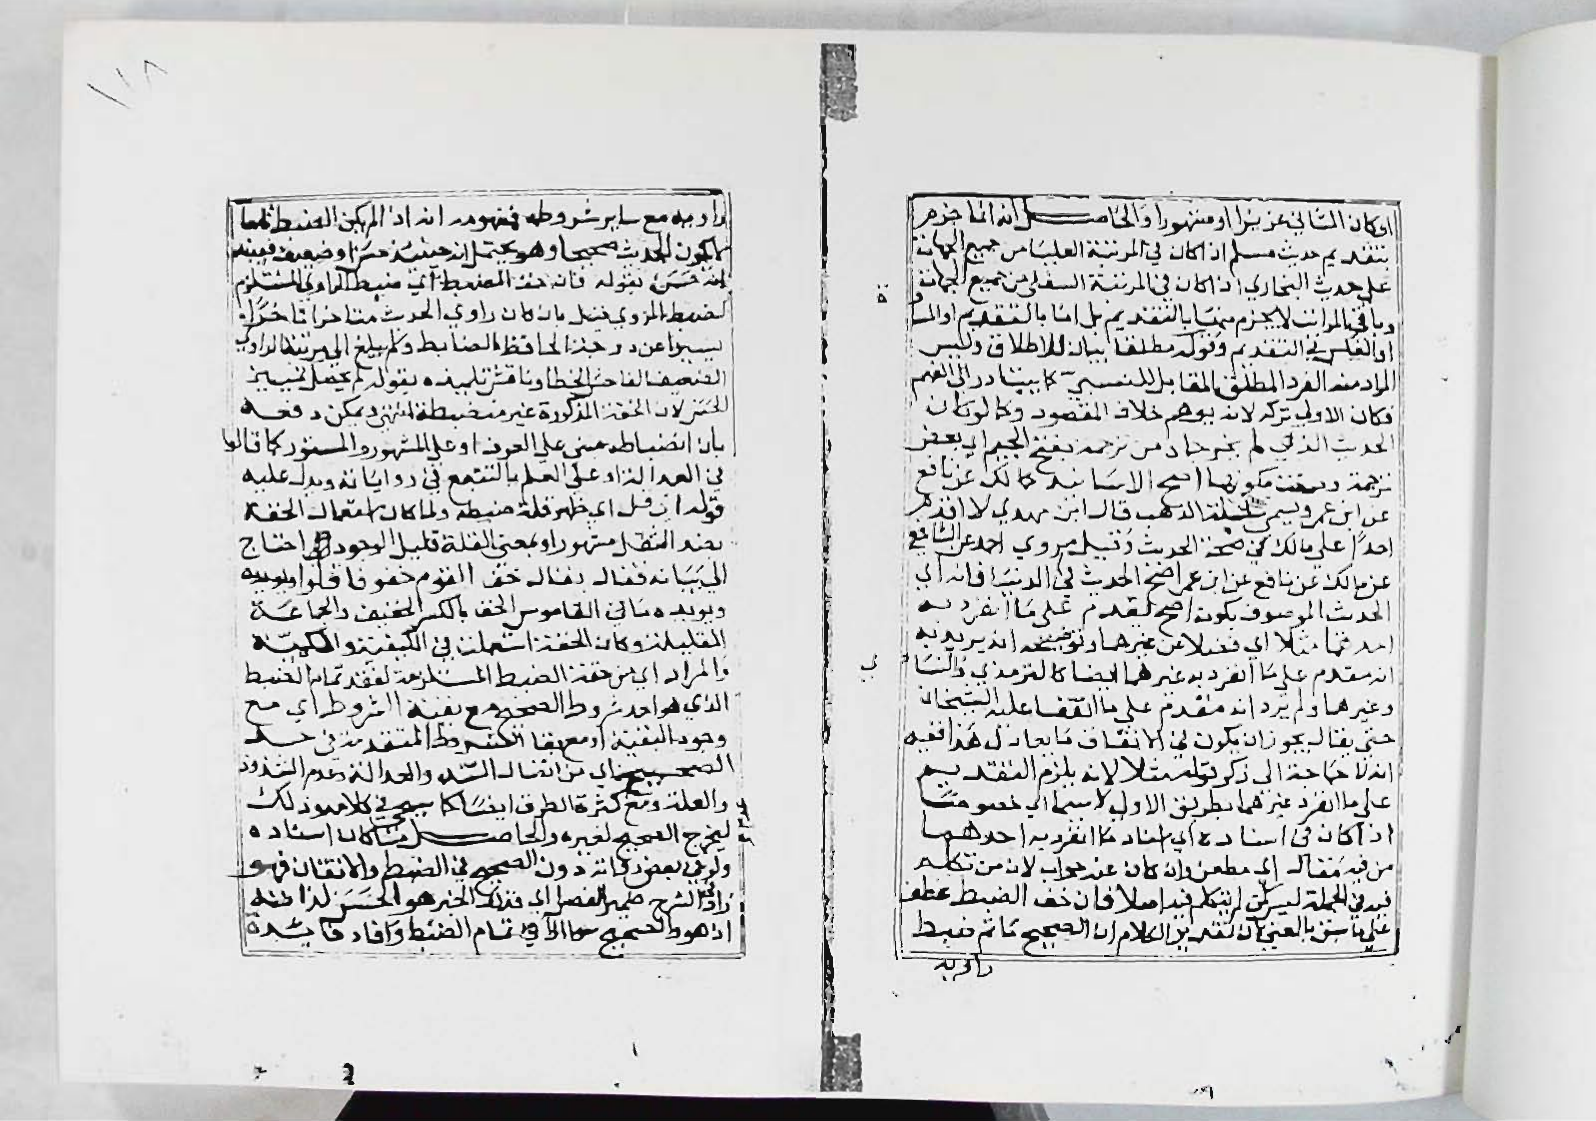 او كان الثاني عزيزا او مشهورا والحاصل انه انما جزم
بتقديم حديث مسلم اذا كان في المرتبة العليا من جميع الجهات
على حديث البخاري اذا كان في المرتبة السفلى من جميع الجهات
وباقي المراتب لا يجزم فيها بالتقديم بل اما بالتقديم او
او العكس في التقديم وقوله مطلقا بيان للاطلاق وليس
المراد منه الفرد المطلق المقابل للنسبي كما يتبادر الى الفهم
فكان الاولى تركه لانه يوهم خلاف المقصود وكما لو كان
الحديث الذي لم يخرجاه من ترجمة بفتح الجيم اي بعض
ترجمة وصفت بكونها اصح الاسانيد كمالك عن نافع
عن ابن عمر ويسمى سلسلة الذهب قال ابن مهدي لا اقدم
احدا على مالك في صحة الحديث وقيل مروي احمد عن الشافعي
عن مالك عن نافع عن ابن عمر اصح الحديث في الدنيا فانه اي
الحديث الموصوف بكونه اصح يقدم على ما انفرد به
احدهما مثلا اي فضلا عن غيرهما وتوضيحه انه يريد به
انه مقدم على ما انفرد به غيرهما ايضا كالترمذي والنسا
وغيرهما ولم يرد انه مقدم على ما اتفقا عليه الشيخان
حتى يقال يجوز ان يكون في الاتفاق ما يعادل هذا ففيه
انه لا حاجة الى ذكر قوله مثلا لانه يلزم التقديم
على ما انفرد غيرهما بطريق الاولى لا سيما اي خصوصا
اذا كان في اسناده اي اسناد ما انفرد به احدهما
من فيه مقال اي مطعن وان كان عنه جواب لان من تكلم
فيه في الجملة ليس كمن لم يتكلم فيه اصلا فان خف الضبط عطف
على ما سبق بالمعنى بان تقدير الكلام ان الصحيح ما تم ضبط
راويه
١١٨
راويه مع ساير شروطه فمفهومه انه اذا لم يكن الضبط تاما
لا يكون الحديث صحيحا وهو يحتمل انه حينئذ حسن او ضعيف فبينه
انه حسن بقوله فان خف الضبط اي ضبط الراوي المستلزم
لضبط المروي فقيل بان كان راوي الحديث متاخرا تاخرا
يسيرا عن درجة الحافظ الضابط ولم يبلغ الى مرتبة الراوي
الضعيف الفاحش الخطا وناقش تلميذه بقوله لم يحصل تمييز
الحسن لان الخفة المذكورة غير منضبطة انتهى ويمكن دفعه
بان انضباطه مبني على العرف او على المشهور والمستور كما قالوا
في العدالة او على العلم بالتتبع في رواياته ويدل عليه
قوله اي قل اي ظهر قلة ضبطه ولما كان استعمال الخفة
بضد الثقل مشهورا وبمعنى القلة قليل الوجود احتاج
الى بيانه فقال يقال خف القوم خفوفا قلوا ويويده
ويويده ما في القاموس الخف بالكسر الخفيف والجماعة
القليلة وكان الخفة استعملت في الكيفية والكمية
والمراد اي من خفة الضبط المستلزمة لفقد تمام الضبط
الذي هو احد شروط الصحيح مع بقية الشروط اي مع
وجود البقية او مع بقا الشروط المتقدمة في حد
الصحيح اي من اتصال السند والعدالة وعدم الشذوذ
والعلة ومع كثرة الطرق ايضا كما سيجي في كلامه وذلك
ليخرج الصحيح لغيره والحاصل ما كان اسناده
ولو في بعض رواته دون الصحيح في الضبط والاتقان فهو
زاد في الشرح ضمير الفصل اي فذلك الخبر هو الحسن لذاته
اذ هو الصحيح سوا الا في تمام الضبط وافاد فايدة